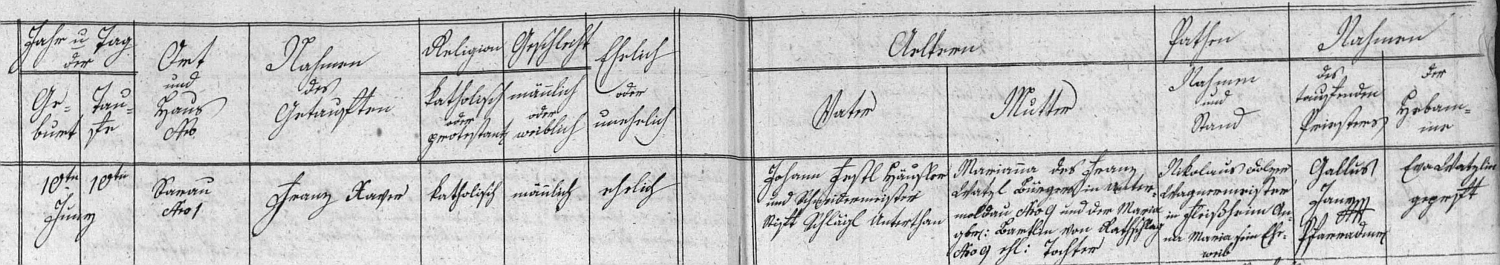 Jahr u Tag
der
Ge-
burt
Tau-
fe
Ort
und
Haus
Nro
Nahmen
des
Getauften
Religion
katholisch
oder
protestant
Geschlecht
männlich
oder
weiblich
Ehelich
oder
unehelich
Aeltern
Vater
Mutter
Pathen
Nahmen
und
Stand
Nahmen
des
taufenden
Priesters
der
Hebam-
me
10tn
Juny
10tn
Sarau
Nro 1
Franz Xaver
katholisch
männlich
ehelich
Johann Häusler
und Schneidermeister
Stift Schlägl Unterthan
Marianna des Franz
Watzl Bürgers in Unter-
moldau Nro 9 und der Maria
gbr: von Rathschlag
Nro 9 ehl: Tochter
Nikolaus
Wagnermeister
in Fleißheim An-
na Maria sein Ehe-
weib
Gallus
Pfarradmr
Eva Watzlin
geprüft